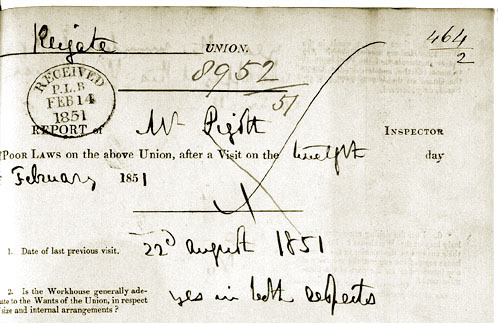 Reigate UNION.
464
2
8952
51
RECEIVED
P.L.B
FEB 14
1851
REPORT of Mr Pigott INSPECTOR
POOR LAWS on the above Union, after a Visit on the twelfth day
February 1851
1. Date of last previous visit. 22d august 1851
2. Is the Workhouse generally ade-
ute to the Wants of the Union, in respect
size and internal arrangements?
yes in both respects